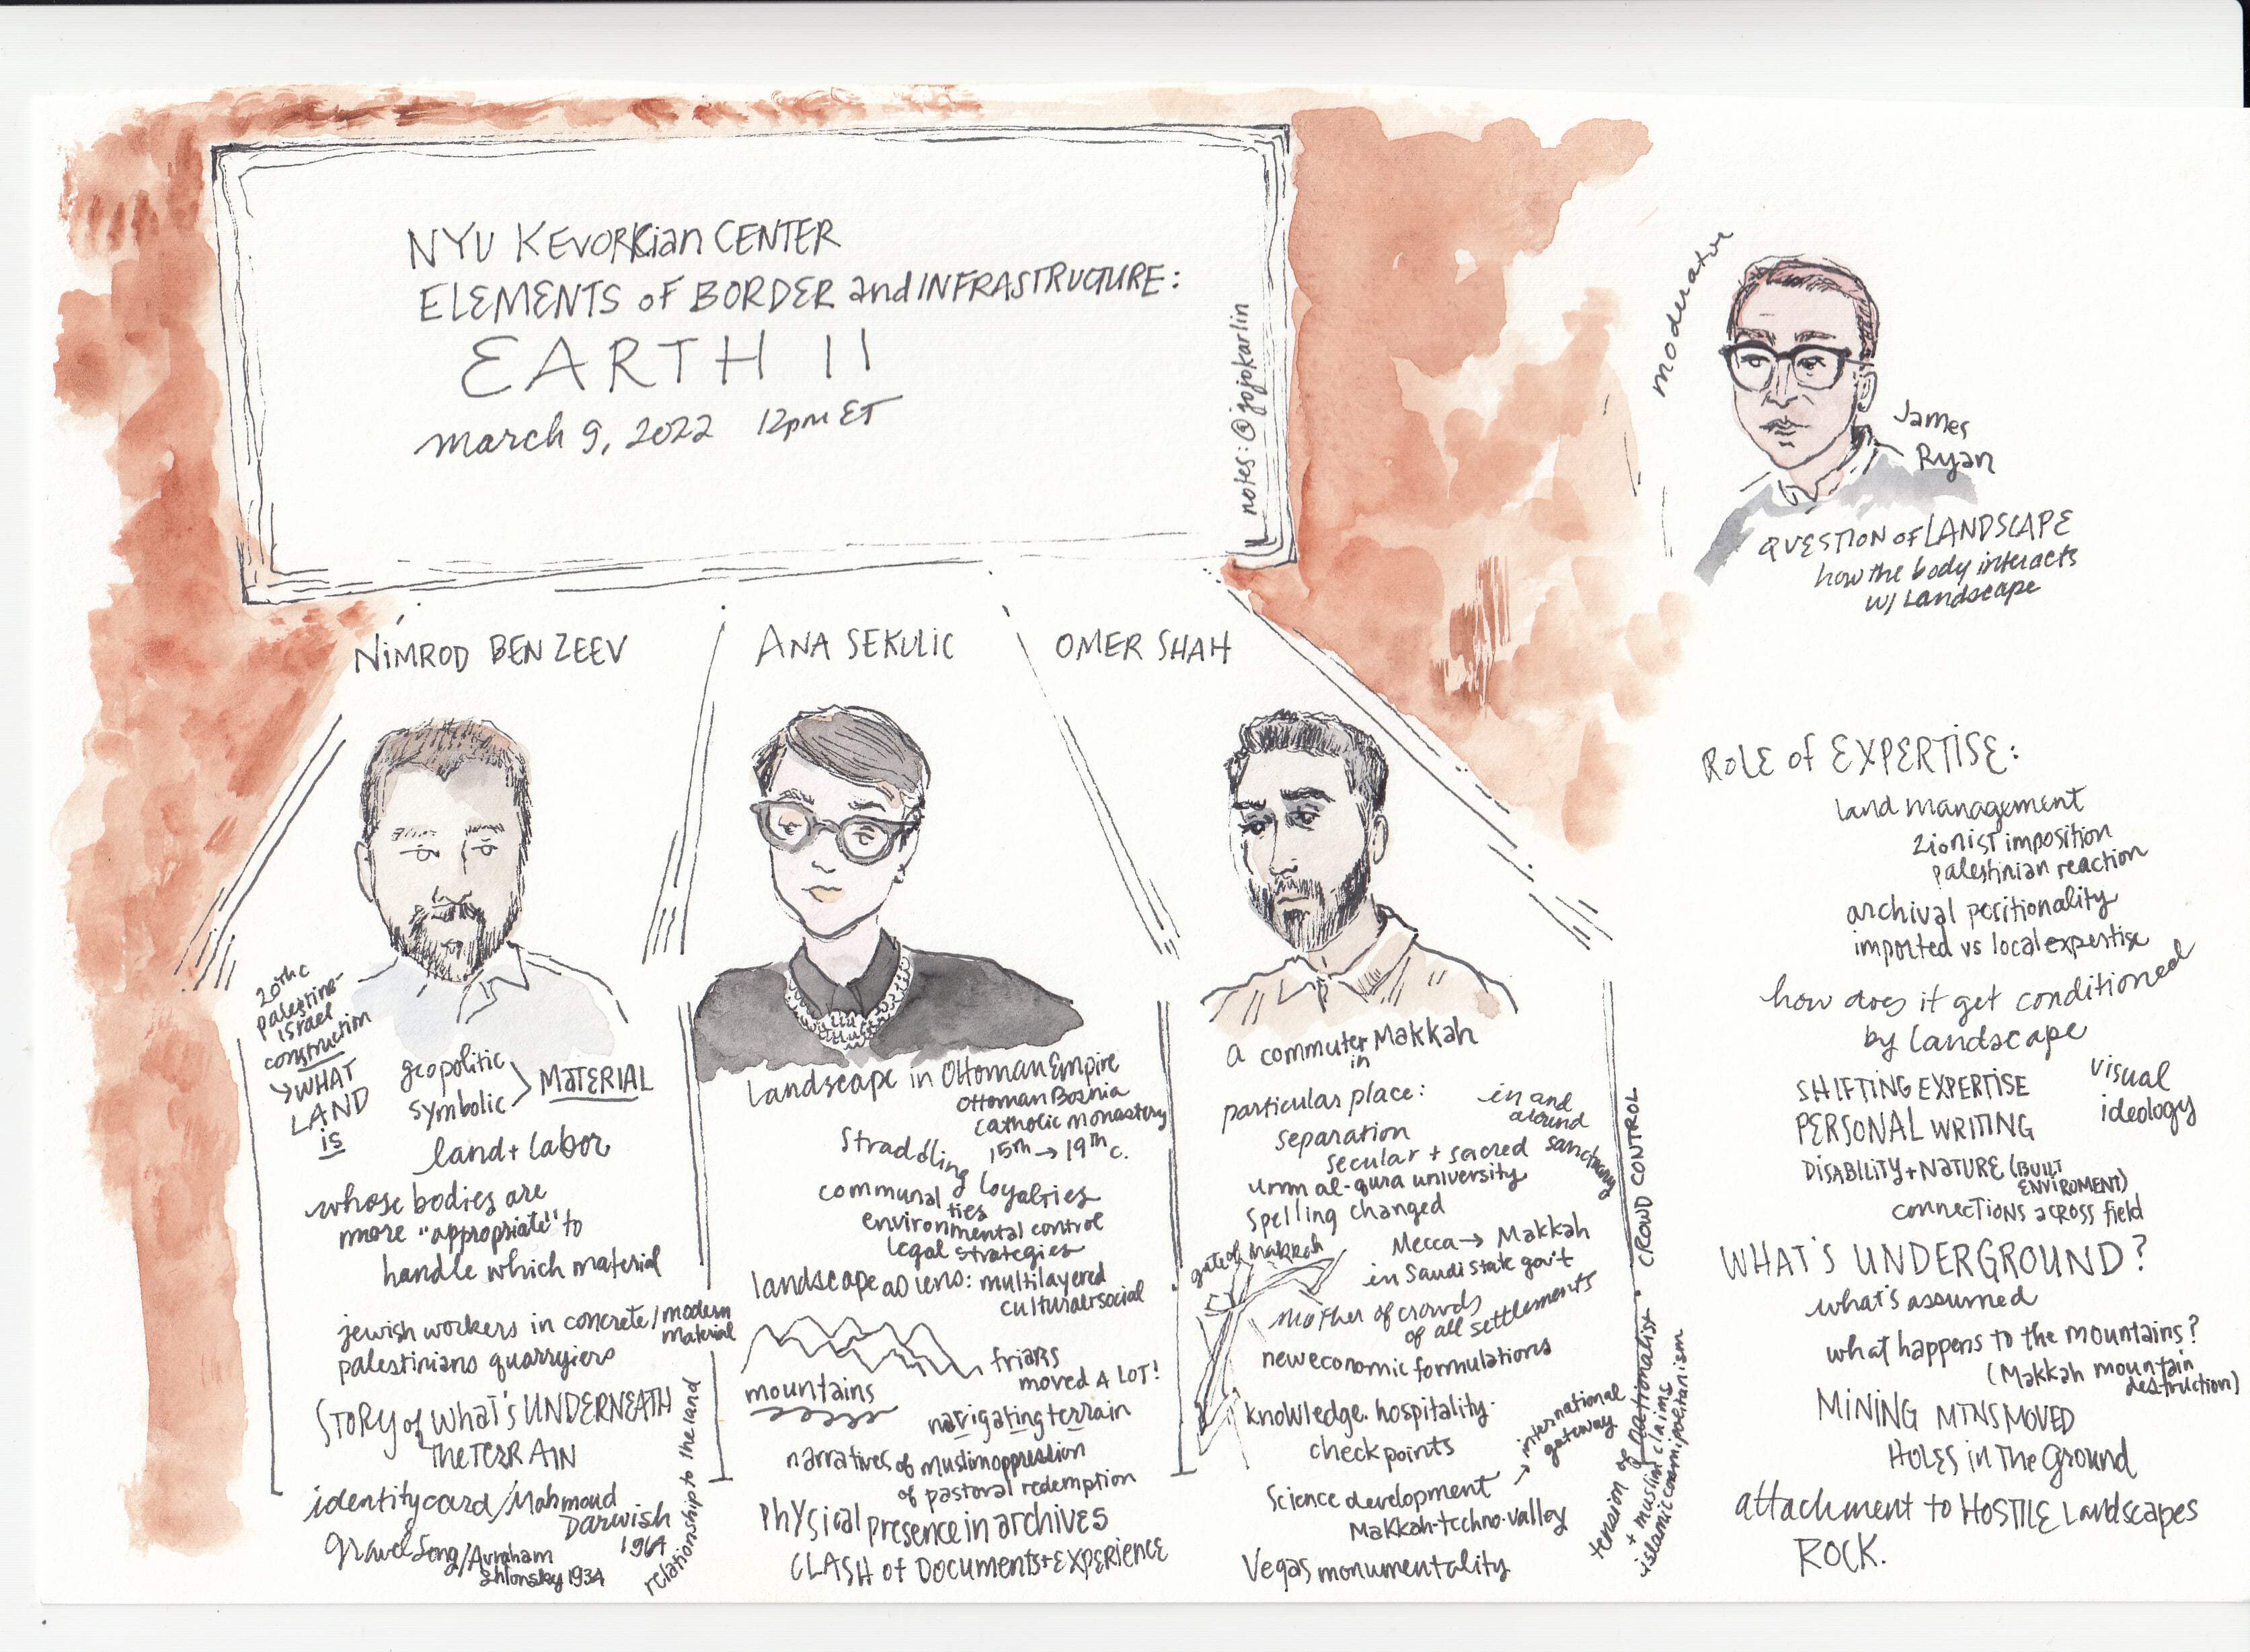 NYU KEVORKian CENTER
ELEMENTS of BORDER and INFRASTRUCTURE:
EARTH II
march 9, 2022 12pm ET
notes: @jojokarlin
moderator
James
Ryan
QUESTION of LANDSCAPE
how the body interacts
w/ Landscape
NIMROD BEN ZEEV
20thc
palestine-
israel
construction
WHAT
LAND
is
geopolitic
symbolic
MATERIAL
land + labor
whose bodies are
more "appropriate" to
handle which material
jewish workers in concrete/modern
material
palestinians quarryiers
STORY of WHAT'S UNDERNEATH
THE TERRAIN
identity card/Mahmoud
Darwish
1964
Gravel Song/Avraham
Shlonsky 1934
relationship to the land
ANA SEKULIC
Landscape in Ottoman Empire
Ottoman Bosnia
catholic monastery
15th → 19th c.
Straddling loyalties
communal ties
environmental control
legal strategies
landscape as lens: multilayered
cultural+social
mountains
friars
moved A LOT!
navigating terrain
narratives of muslim oppression
of pastoral redemption
PHYSical presence in archives
CLASH of Documents+EXPERIENCE
OMER SHAH
a commuter in Makkah
particular place:
in and
around
sanctuary
separation
secular + sacred
umm al-qura university
spelling changed
Mecca → Makkah
in Saudi state gov't
gate of makkah
mother of crowds
of all settlements
new economic formulations
knowledge. hospitality.
checkpoints
international
gateway
Science development
Makkah-techno-valley
Vegas monumentality
tension of nationalist • CROWD CONTROL
+ muslim claims
islamic cosmopolitanism
ROLE of EXPERTISE:
land management
zionist imposition
palestinian reaction
archival positionality
imported vs local expertise
how does it get conditioned
by landscape
SHIFTING EXPERTISE
visual
ideology
PERSONAL WRITING
DISABILITY + NATURE (BUILT
ENVIROMENT)
connections across field
WHAT'S UNDERGROUND?
what's assumed
what happens to the mountains?
(Makkah mountain
destruction)
MINING MTNS MOVED
HOLES in The Ground
attachment to HOSTILE Landscapes
ROCK.